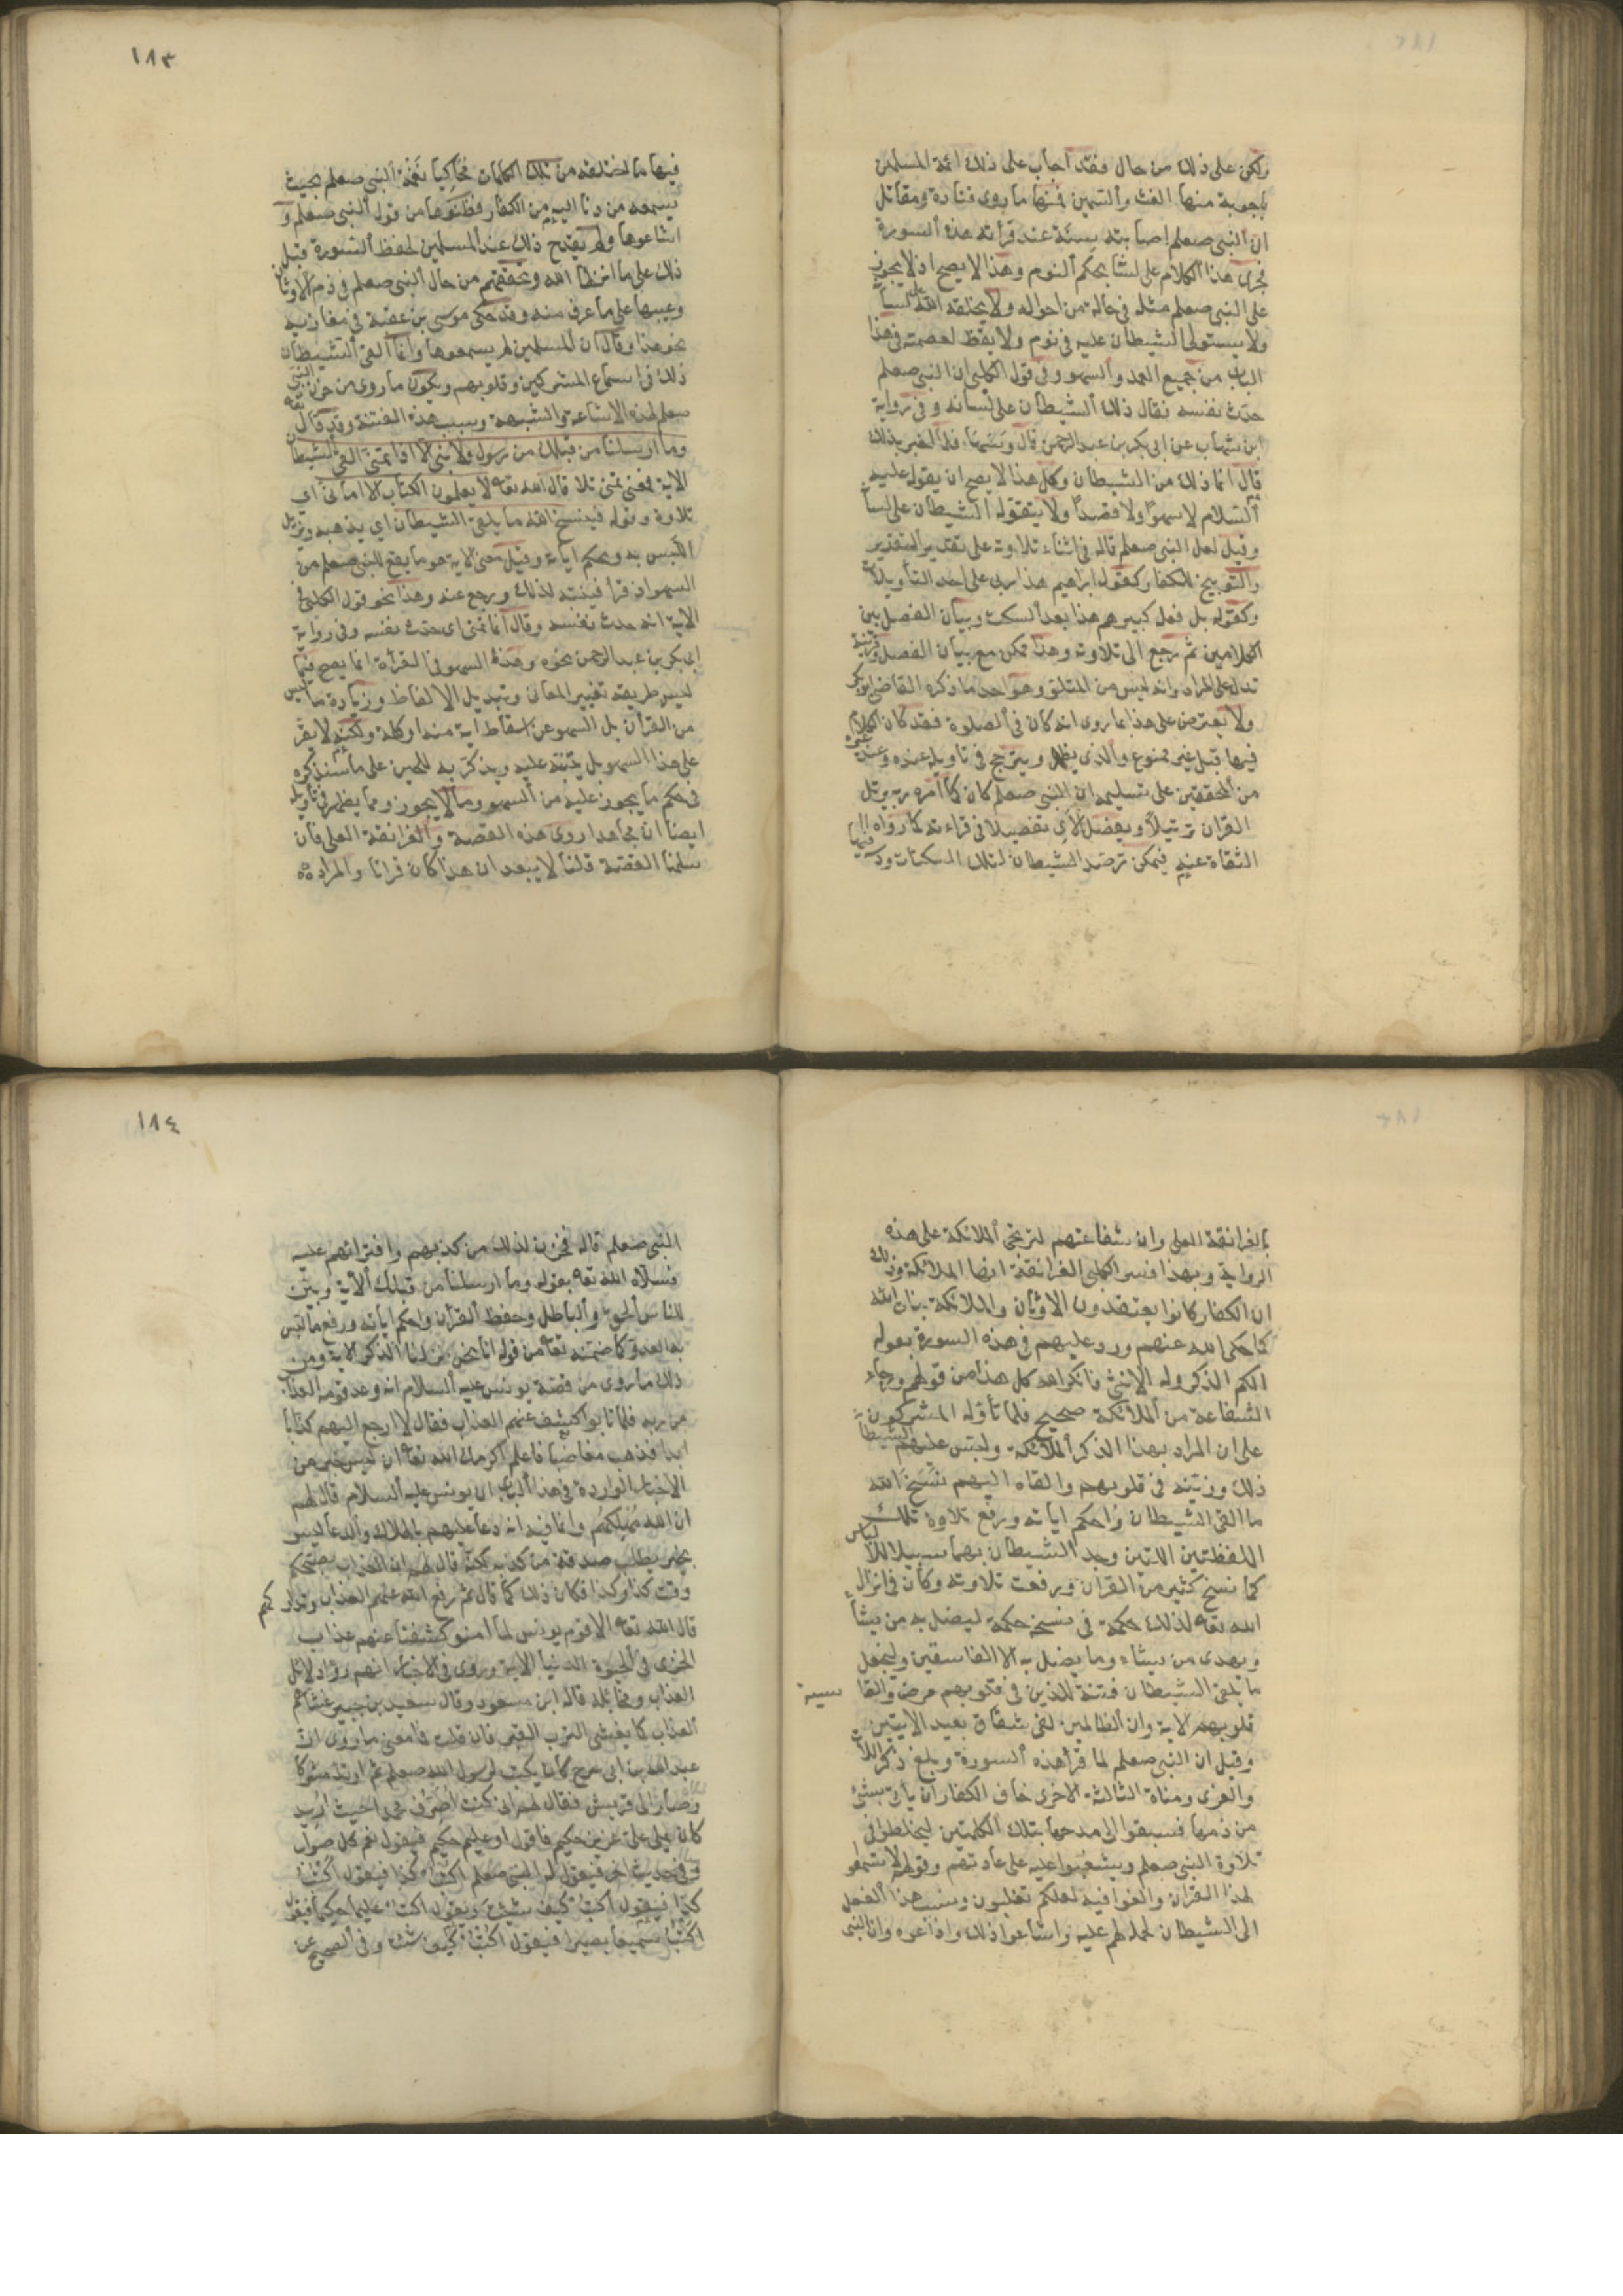 ولكن على ذلك من حال فقد اجاب على ذلك ائمة المسلمين
باجوبة منها الغث والسمين فمنها ما روى قتادة ومقاتل
ان النبي صعلم اصابته سنة عند قرأته هذه السورة
فجرى هذا الكلام على لسانه بحكم النوم وهذا لا يصح اذ لا يجوز
على النبي صعلم مثله في حالة من احواله ولا يخلقه الله على لسانه
ولا يستولى الشيطان عليه في نوم ولا يقظ لعصمته في هذا
الباب من جميع العمد والسهو وفي قول الكلبي ان النبي صعلم
حدث نفسه فقال ذلك الشيطان على لسانه وفي رواية
ابن شهاب عن ابي بكر بن عبد الرحمن قال وسها فلما اخبر بذلك
قال انما ذلك من الشيطان وكل هذا لا يصح ان يقوله عليه
السلام لا سهوا ولا قصدا ولا يتقوله الشيطان على لسانه
وقيل لعل النبي صعلم قاله في اثناء تلاوته على تقدير التقرير
والتوبيخ للكفار كقول ابراهيم هذا ربي على احد التأويلات
وكقوله بل فعل كبيرهم هذا بعد السكت وبيان الفصل بين
الكلامين ثم رجع الى تلاوته وهذا ممكن مع بيان الفصل وقرينة
تدل على المراد وانه ليس من المتلو وهو احد ما ذكره القاضي ابو بكر
ولا يعترض على هذا بما روى انه كان في الصلوة فقد كان الكلام
فيها قبل غير ممنوع والذي يظهر ويترجح في تاويله عنده وعند غيره
من المحققين على تسليمه ان النبي صعلم كان كما امره ربه يرتل
القران ترتيلا ويفصل الآي تفصيلا في قراءته كما رواه
الثقاة عنه فيمكن ترصد الشيطان لتلك السكتات ودسه فيها
١٨٣
فيها ما اختلقه من تلك الكلمات محاكيا نغمة النبي صعلم بحيث
يسمعه من دنا اليه من الكفار فظنوها من قول النبي صعلم و
اشاعوها ولم يقدح ذلك عند المسلمين لحفظ السورة قبل
ذلك على ما انزلها الله وتحققهم من حال النبي صعلم في ذم الاوثان
وعيبها على ما عرف منه وقد حكى موسى بن عقبة في مغازيه
نحو هذا وقال ان المسلمين لم يسمعوها وانما القى الشيطان
ذلك في اسماع المشركين وقلوبهم ويكون ما روى من حزن النبي
صعلم لهذه الاشاعة والشبهة وسبب هذه الفتنة وقد قال تعه
وما ارسلنا من قبلك من رسول ولا نبي الا اذا تمنى القى الشيطان
الاية فمعنى تمنى تلا قال الله تعه لا يعلمون الكتاب الا اماني اي
تلاوة وقوله فينسخ الله ما يلقى الشيطان اي يذهبه ويزيل
اللبس به ويحكم اياته وقيل معنى الاية هو ما يقع للنبي صعلم من
السهو اذ قرأ فينتبه لذلك ويرجع عنه وهذا نحو قول الكلبي في
الاية انه حدث نفسه وقال اذا تمنى اي حدث نفسه وفي رواية
ابي بكر بن عبد الرحمن نحوه وهذا السهو في القرأة انما يصح فيما
ليس طريقه تغيير المعاني وتبديل الالفاظ وزيادة ما ليس
من القرآن بل السهو عن اسقاط اية منه او كلمة ولكنه لا يقر
على هذا السهو بل ينبه عليه ويذكر به للحين على ما سنذكره
في حكم ما يجوز عليه من السهو وما لا يجوز ومما يظهر في تأويله
ايضا ان مجاهدا روى هذه القصة والغرانقة العلى فان
سلمنا القصة قلنا لا يبعد ان هذا كان قرانا والمراد
بالغرانقة العلى وان شفاعتهم لترتجى الملائكة على هذه
الرواية وبهذا فسر الكلبي الغرانقة انها الملائكة وذلك
ان الكفار كانوا يعتقدون الاوثان والملائكة بنات الله
كما حكى الله عنهم ورد عليهم في هذه السورة بقوله
الكم الذكر وله الانثى فانكر الله كل هذا من قولهم ورجاء
الشفاعة من الملائكة صحيح فلما تأوله المشركون
على ان المراد بهذا الذكر الملائكة ولبس عليهم الشيطان
ذلك وزينه في قلوبهم والقاه اليهم نسخ الله
ما القى الشيطان واحكم اياته ورفع تلاوة تلك
اللفظتين اللتين وجد الشيطان بهما سبيلا للالباس
كما نسخ كثير من القران ورفعت تلاوته وكان في انزال
الله تعه لذلك حكمة في نسخه حكمة ليضل به من يشأ
ويهدى من يشاء وما يضل به الا الفاسقين وليجعل
ما يلقى الشيطان فتنة للذين في قلوبهم مرض والقاسية
قلوبهم الاية وان الظالمين لفى شقاق بعيد الايتين
وقيل ان النبي صعلم لما قرأ هذه السورة وبلغ ذكر اللات
والعزى ومناة الثالثة الاخرى خاف الكفار ان يأتي بشئ
من ذمها فسبقوا الى مدحها بتلك الكلمتين ليخلطوا في
تلاوة النبي صعلم ويشغبوا عليه على عادتهم وقولهم لا تسمعوا
لهذا القران والغوا فيه لعلكم تغلبون ونسب هذا الفعل
الى الشيطان لحمله لهم عليه واشاعوا ذلك واذاعوه وان النبي
١٨٤
النبي صعلم قاله فحزن لذلك من كذبهم وافترائهم عليه
فسلاه الله تعه بقوله وما ارسلنا من قبلك الاية وبين
للناس الحق والباطل وحفظ القرآن واحكم اياته ورفع ما لبس
به العدو كما ضمنه تعه من قوله انا نحن نزلنا الذكر الاية ومن
ذلك ما روى من قصة يونس عليه السلام انه وعد قومه العذاب
من ربه فلما تابوا كشف عنهم العذاب فقال لا ارجع اليهم كذابا
ابدا فذهب مغاضبا فاعلم اكرمك الله تعه ان ليس خبر من
الاخبار الواردة في هذا الباب ان يونس عليه السلام قال لهم
ان الله مهلككم وانما فيه انه دعا عليهم بالهلاك والدعا ليس
بخبر يطلب صدقه من كذبه لكنه قال لهم ان العذاب مصبحكم
وقت كذا وكذا فكان ذلك كما قال ثم رفع الله عنهم العذاب وتداركهم
قال الله تعه الا قوم يونس لما امنوا كشفنا عنهم عذاب
الخزى في الحيوة الدنيا الاية وروى في الاخبار انهم رأوا دلائل
العذاب ومخائله قاله ابن مسعود وقال سعيد بن جبير غشاهم
العذاب كما يغشى الثوب القبر فان قلت فما معنى ما روى ان
عبد الله بن ابي سرح كان يكتب لرسول الله صعلم ثم ارتد مشركا
وصار الى قريش فقال لهم اني كنت اصرف محمدا حيث اريد
كان يملي علي عزيز حكيم فاقول او عليم حكيم فيقول نعم كل صواب
وفي حديث اخر فيقول له النبي صعلم اكتب كذا فيقول اكتب
كذا فيقول اكتب كيف شئت ويقول اكتب عليما حكيما فيقول
اكتب سميعا بصيرا فيقول اكتب كيف شئت وفي الصحيح عن